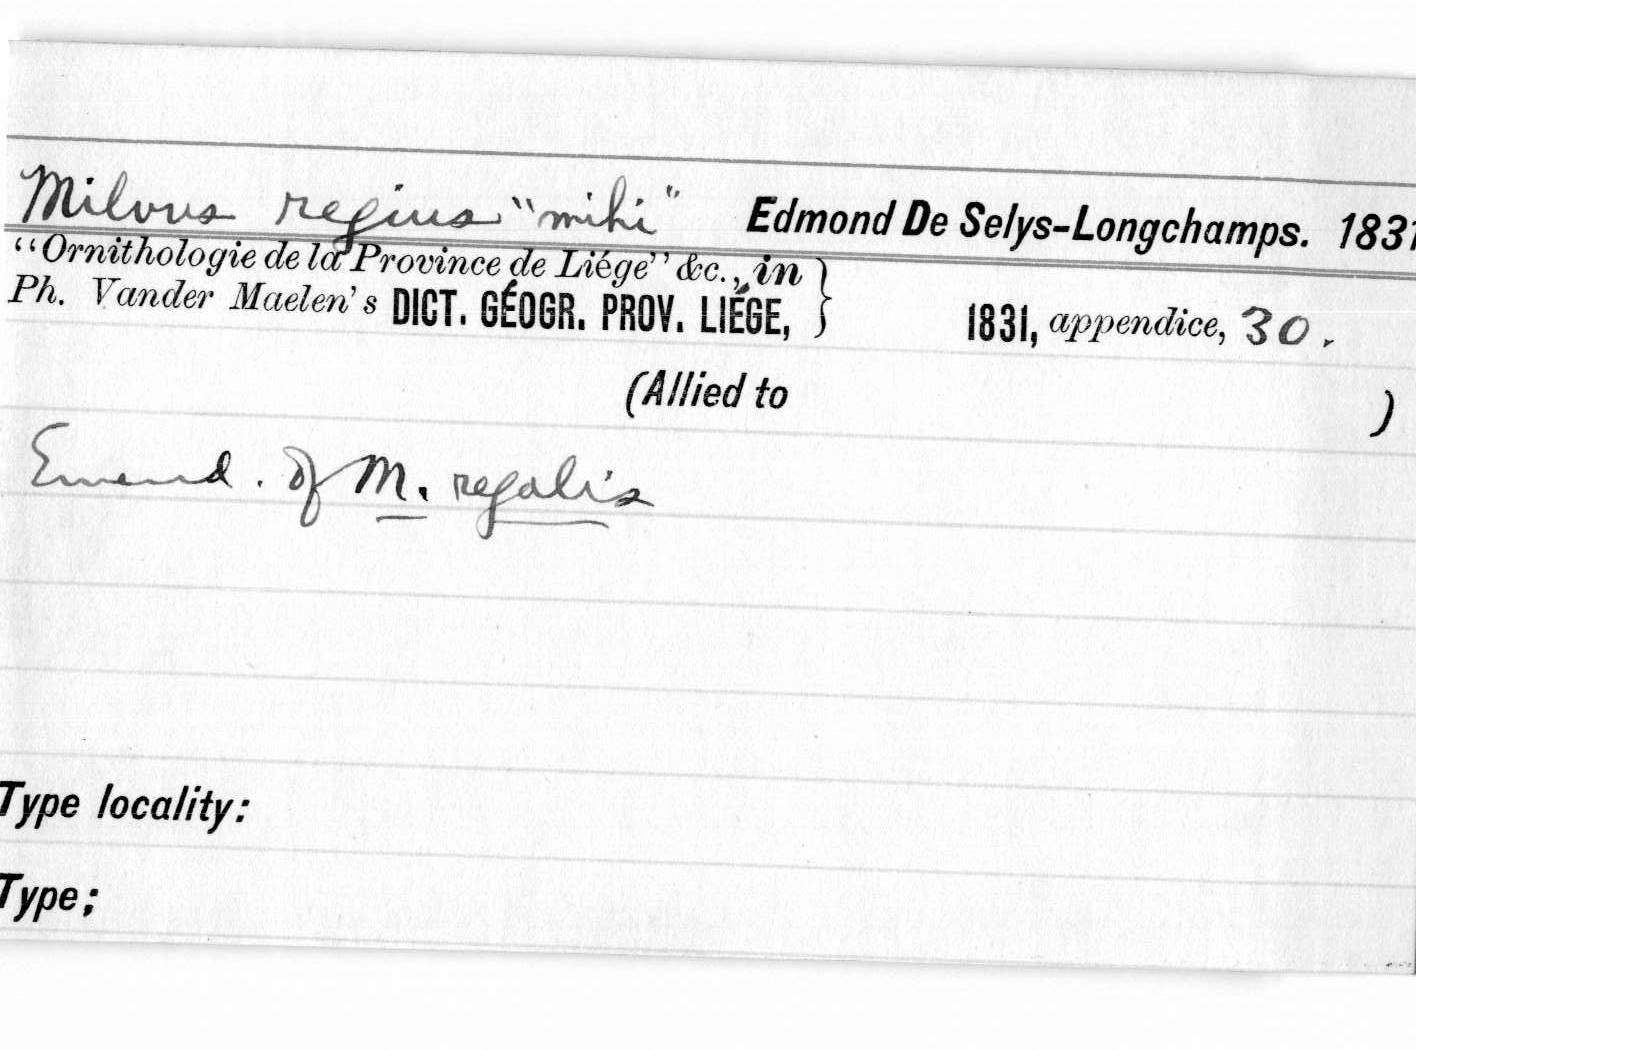 Milvus regius "mihi" Edmond De Selys-Longchamps. 1831
"Ornithologie de la Province de Liége" &c., in
Ph. Vander Maelen's DICT. GÉOGR. PROV. LIÉGE, 1831, appendice, 30.
(Allied to )
Emend. of M. regalis
Type locality:
Type;